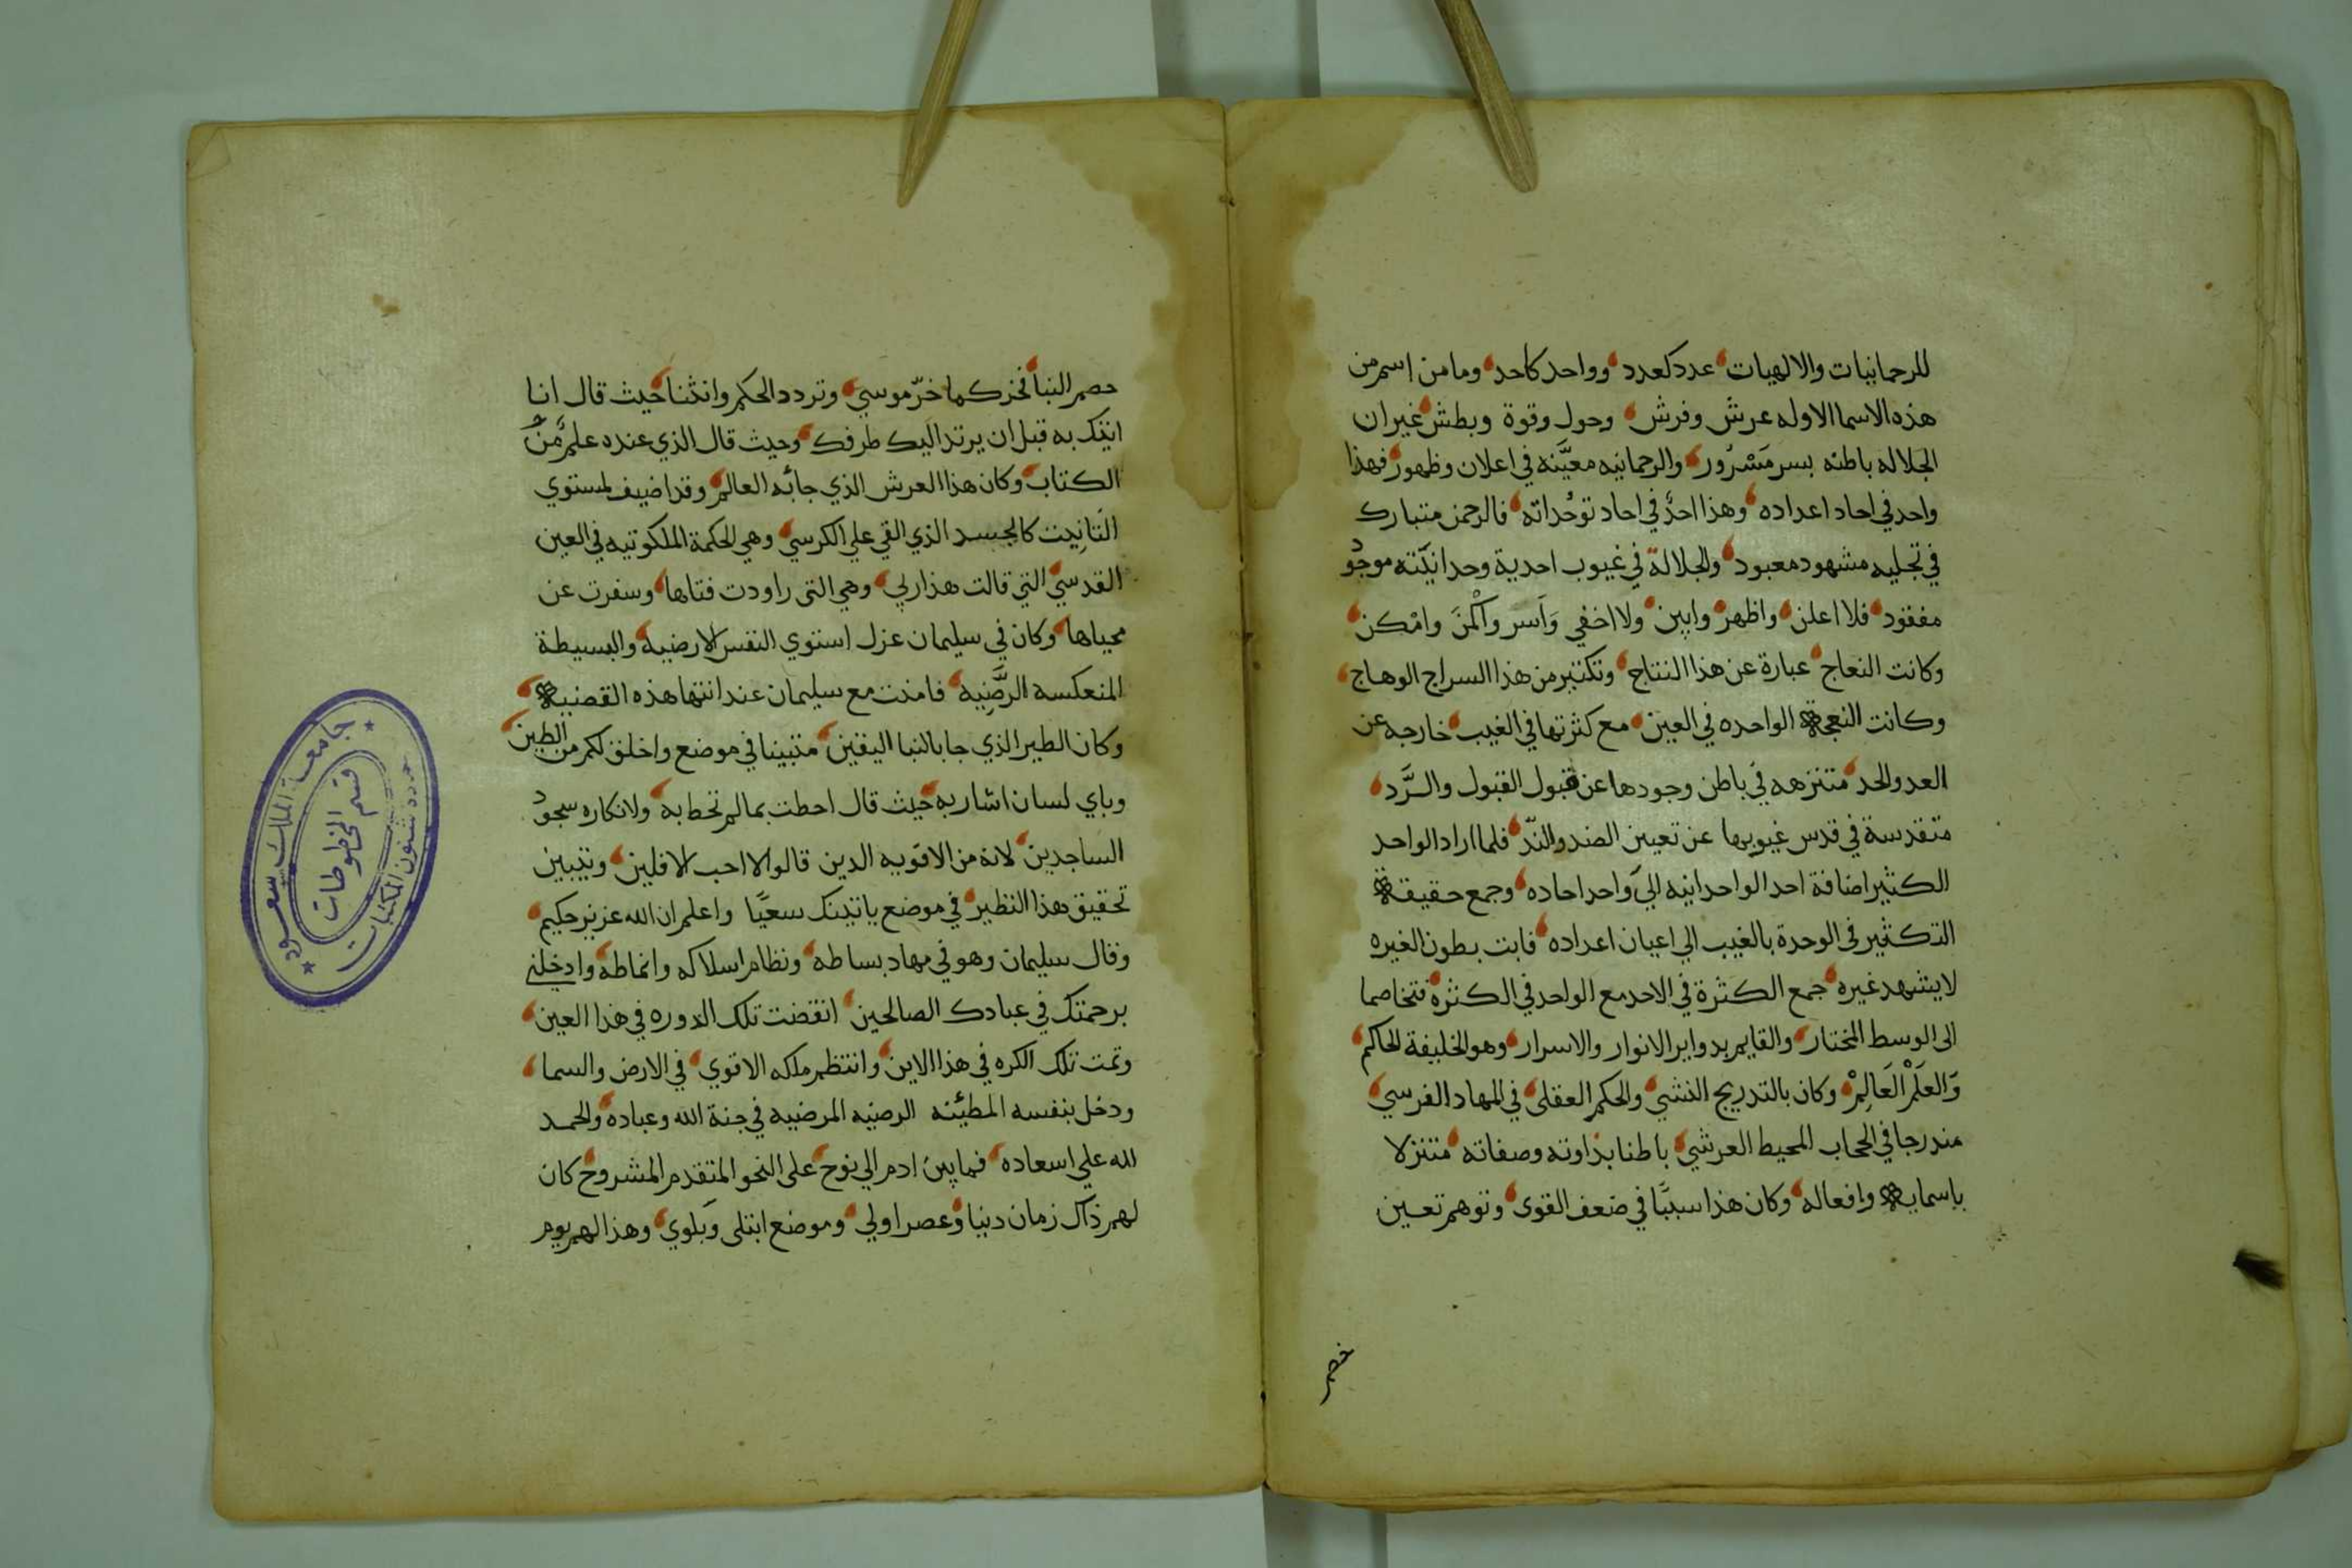 للرحمانيات والالهيات عدد كعدد وواحد كاحد وما من اسم من
هذه الاسما الاوله عرش وفرش وحول وقوة وبطش غير ان
الجلاله باطنه بسر مَسْرُور والرحمانيه معيَّنه في اعلان وظهور فهذا
واحد في احاد اعداده وهذا احدٌ في احاد توحُداته فالرحمن متبارك
في تجليه مشهود معبود والجلالة في غيوب احدية وحدانيّته موجود
مفقود فلا اعلن واظهر وابين ولا اخفي وَاَسر واكْمنَ وامْكن
وكانت النعاج عبارة عن هذا النتاج وتكثير من هذا السراج الوهاج
وكانت النعجة الواحده في العين مع كثرتها في الغيب خارجه عن
العد والحد متنزهه في باطن وجودها عن قبول القبول والرَّد
متقدسة في قدس غيوبها عن تعيين الضد والندّ فلما اراد الواحد
الكثير اضافة احد الواحدانيه الي واحد احاده وجمع حقيقة
التكثير في الوحدة بالغيب الي اعيان اعداده فابت بطون الغيره
لا يشهد غيره جمع الكثرة في الاحد مع الواحد في الكثرة فتخاصما
الى الوسط المختار والقايم بدواير الانوار والاسرار وهو الخليفة الحاكم
وَالعلَمْ العَالِمْ وكان بالتدريج النشي والحكم العقلي في المهاد الفرسي
مندرجا في الحجاب المحيط العرشي باطنا بذاوته وصفاته متنزلا
باسمايه وافعاله وكان هذا سببًا في ضعف القوى وتوهم تعين
خصم
حصم النبا فخر كما خرّ موسي وتردد الحكم وانثنا حيث قال انا
اتيك به قبل ان يرتد اليك طرفك وحيث قال الذي عنده علم مِّن
الكتاب وكان هذا العرش الذي جائه العالم وقد اضيف لمستوي
التَانيث كالجسد الذي القي علي الكرسي وهي الحكمة الملكوتيه في العين
القدسي التي قالت هذا ربي وهي التى راودت فتاها وسفرت عن
محياها وكان في سليمان عزل استوي النفس الارضيه والبسيطة
المنعكسه الرَّضيه فامنت مع سليمان عند انتها هذه القضيه
وكان الطير الذي جا بالنبا اليقين متبينا في موضع واخلق لكم من الطين
وباي لسان اشار به حيث قال احطت بما لم تحط به ولانكاره سجود
الساجدين لانه من الاقويه الدين قالوا لا احب الافلين ويتبين
تحقيق هذا النظير في موضع ياتينك سعيًا واعلم ان الله عزيز حكيم
وقال سليمان وهو في مهاد بساطه ونظام اسلاكه وانماطه وادخلني
برحمتك في عبادك الصالحين انقضت تلك الدوره في هذا العين
وتمت تلك الكره في هذا الاين وانتظم ملكه الاقوي في الارض والسما
ودخل بنفسه المطئنه الرضيه المرضيه في جنة الله وعباده والحمد
لله علي اسعاده فما بين ادم الي نوح على النحو المتقدم المشروح كان
لهم ذاك زمان دنيا وعصر اولي وموضع ابتلى وبلوي وهذا لهم يوم
جامعة الملك سعود
عمادة شئون المكتبات
قسم المخطوطات